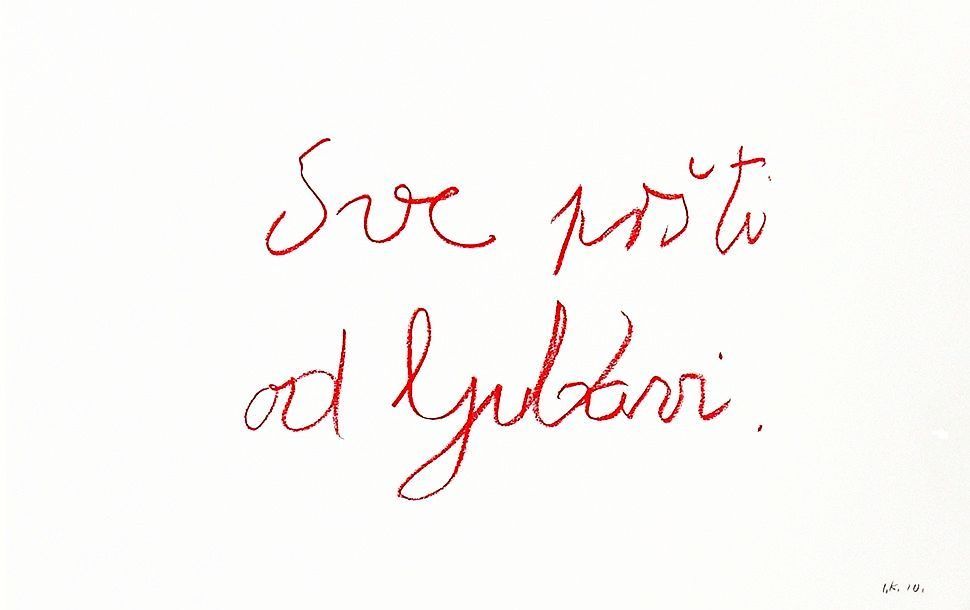 Sve pršti
od ljubavi.
I.K. 10.